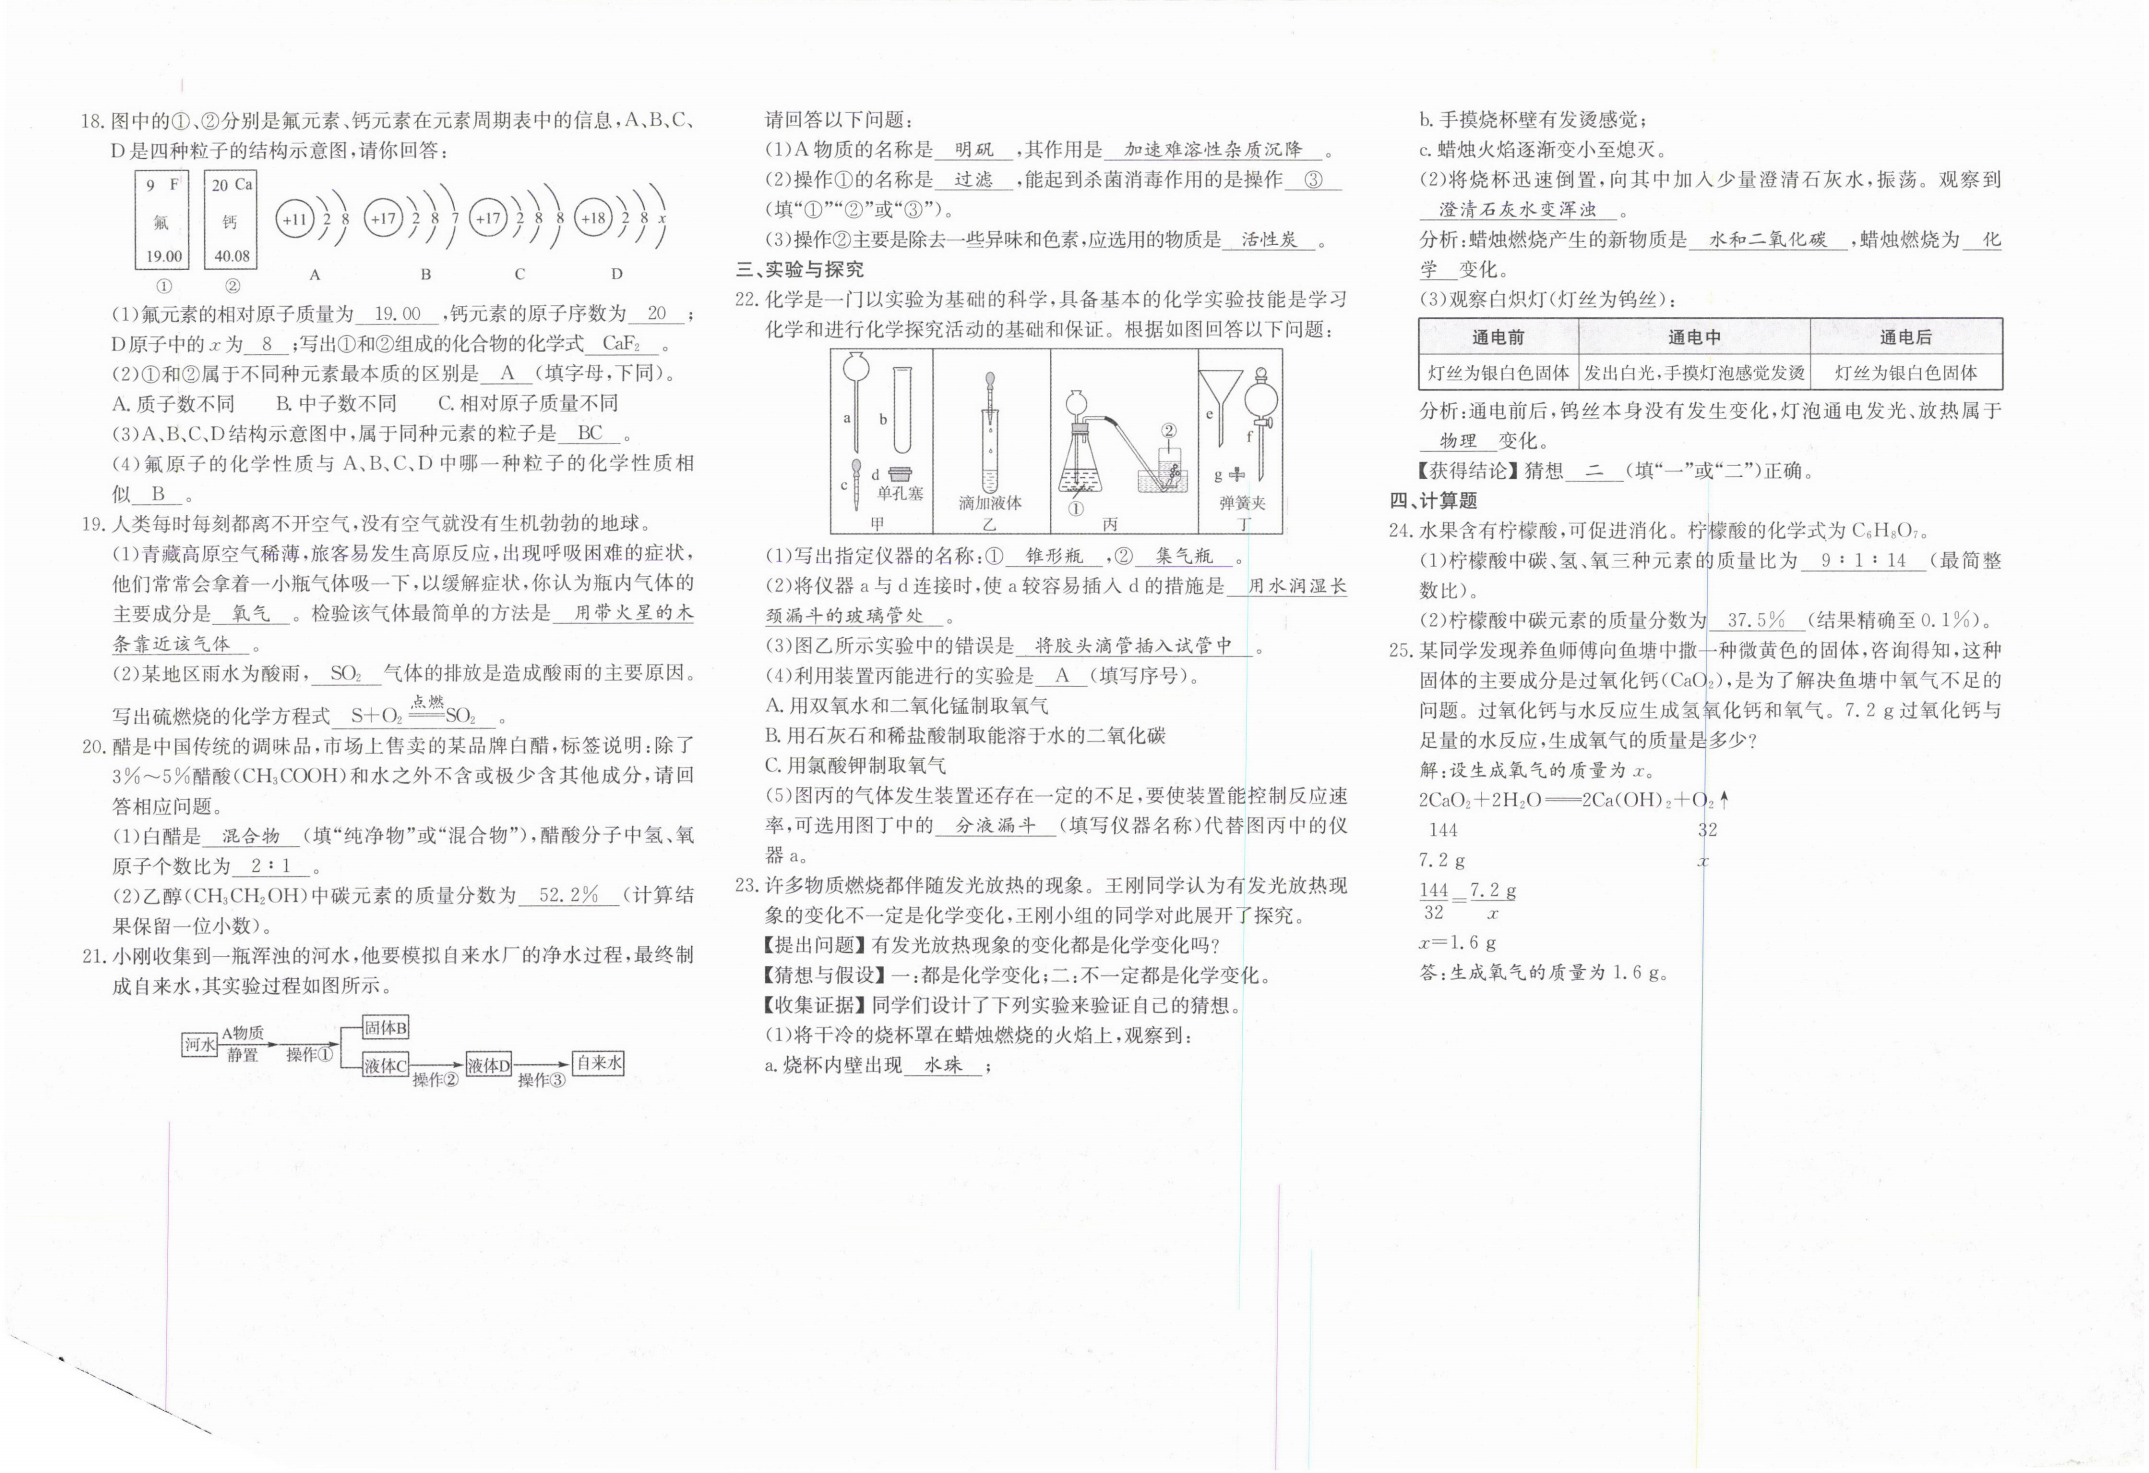 18. 图中的①、②分别是氟元素、钙元素在元素周期表中的信息,A、B、C、
D是四种粒子的结构示意图,请你回答:
9 F 20 Ca
氟 钙
19.00 40.08
① ②
+11 2 8 +17 2 8 7 +17 2 8 8 +18 2 8 x
A B C D
(1)氟元素的相对原子质量为 19.00 ,钙元素的原子序数为 20 ;
D原子中的x为 8 ;写出①和②组成的化合物的化学式 CaF₂ 。
(2)①和②属于不同种元素最本质的区别是 A (填字母,下同)。
A. 质子数不同 B. 中子数不同 C. 相对原子质量不同
(3)A、B、C、D结构示意图中,属于同种元素的粒子是 BC 。
(4)氟原子的化学性质与 A、B、C、D 中哪一种粒子的化学性质相
似 B 。
19. 人类每时每刻都离不开空气,没有空气就没有生机勃勃的地球。
(1)青藏高原空气稀薄,旅客易发生高原反应,出现呼吸困难的症状,
他们常常会拿着一小瓶气体吸一下,以缓解症状,你认为瓶内气体的
主要成分是 氧气 。检验该气体最简单的方法是 用带火星的木
条靠近该气体 。
(2)某地区雨水为酸雨, SO₂ 气体的排放是造成酸雨的主要原因。
写出硫燃烧的化学方程式 S+O₂ 点燃══ SO₂ 。
20. 醋是中国传统的调味品,市场上售卖的某品牌白醋,标签说明:除了
3%~5%醋酸(CH₃COOH)和水之外不含或极少含其他成分,请回
答相应问题。
(1)白醋是 混合物 (填“纯净物”或“混合物”),醋酸分子中氢、氧
原子个数比为 2∶1 。
(2)乙醇(CH₃CH₂OH)中碳元素的质量分数为 52.2% (计算结
果保留一位小数)。
21. 小刚收集到一瓶浑浊的河水,他要模拟自来水厂的净水过程,最终制
成自来水,其实验过程如图所示。
河水 A物质 静置 操作① 固体B
液体C 操作② 液体D 操作③ 自来水
请回答以下问题:
(1)A物质的名称是 明矾 ,其作用是 加速难溶性杂质沉降 。
(2)操作①的名称是 过滤 ,能起到杀菌消毒作用的是操作 ③
(填“①”“②”或“③”)。
(3)操作②主要是除去一些异味和色素,应选用的物质是 活性炭 。
三、实验与探究
22. 化学是一门以实验为基础的科学,具备基本的化学实验技能是学习
化学和进行化学探究活动的基础和保证。根据如图回答以下问题:
a b c d 单孔塞 甲
滴加液体 乙
① ② 丙
e f g 弹簧夹 丁
(1)写出指定仪器的名称:① 锥形瓶 ,② 集气瓶 。
(2)将仪器a与d连接时,使a较容易插入d的措施是 用水润湿长
颈漏斗的玻璃管处 。
(3)图乙所示实验中的错误是 将胶头滴管插入试管中 。
(4)利用装置丙能进行的实验是 A (填写序号)。
A. 用双氧水和二氧化锰制取氧气
B. 用石灰石和稀盐酸制取能溶于水的二氧化碳
C. 用氯酸钾制取氧气
(5)图丙的气体发生装置还存在一定的不足,要使装置能控制反应速
率,可选用图丁中的 分液漏斗 (填写仪器名称)代替图丙中的仪
器a。
23. 许多物质燃烧都伴随发光放热的现象。王刚同学认为有发光放热现
象的变化不一定是化学变化,王刚小组的同学对此展开了探究。
【提出问题】有发光放热现象的变化都是化学变化吗?
【猜想与假设】一:都是化学变化;二:不一定都是化学变化。
【收集证据】同学们设计了下列实验来验证自己的猜想。
(1)将干冷的烧杯罩在蜡烛燃烧的火焰上,观察到:
a. 烧杯内壁出现 水珠 ;
b. 手摸烧杯壁有发烫感觉;
c. 蜡烛火焰逐渐变小至熄灭。
(2)将烧杯迅速倒置,向其中加入少量澄清石灰水,振荡。观察到
澄清石灰水变浑浊 。
分析:蜡烛燃烧产生的新物质是 水和二氧化碳 ,蜡烛燃烧为 化
学 变化。
(3)观察白炽灯(灯丝为钨丝):
通电前 通电中 通电后
灯丝为银白色固体 发出白光,手摸灯泡感觉发烫 灯丝为银白色固体
分析:通电前后,钨丝本身没有发生变化,灯泡通电发光、放热属于
物理 变化。
【获得结论】猜想 二 (填“一”或“二”)正确。
四、计算题
24. 水果含有柠檬酸,可促进消化。柠檬酸的化学式为 C₆H₈O₇。
(1)柠檬酸中碳、氢、氧三种元素的质量比为 9∶1∶14 (最简整
数比)。
(2)柠檬酸中碳元素的质量分数为 37.5% (结果精确至0.1%)。
25. 某同学发现养鱼师傅向鱼塘中撒一种微黄色的固体,咨询得知,这种
固体的主要成分是过氧化钙(CaO₂),是为了解决鱼塘中氧气不足的
问题。过氧化钙与水反应生成氢氧化钙和氧气。7.2 g过氧化钙与
足量的水反应,生成氧气的质量是多少?
解:设生成氧气的质量为x。
2CaO₂+2H₂O══2Ca(OH)₂+O₂↑
144 32
7.2 g x
144/32=7.2 g/x
x=1.6 g
答:生成氧气的质量为1.6 g。